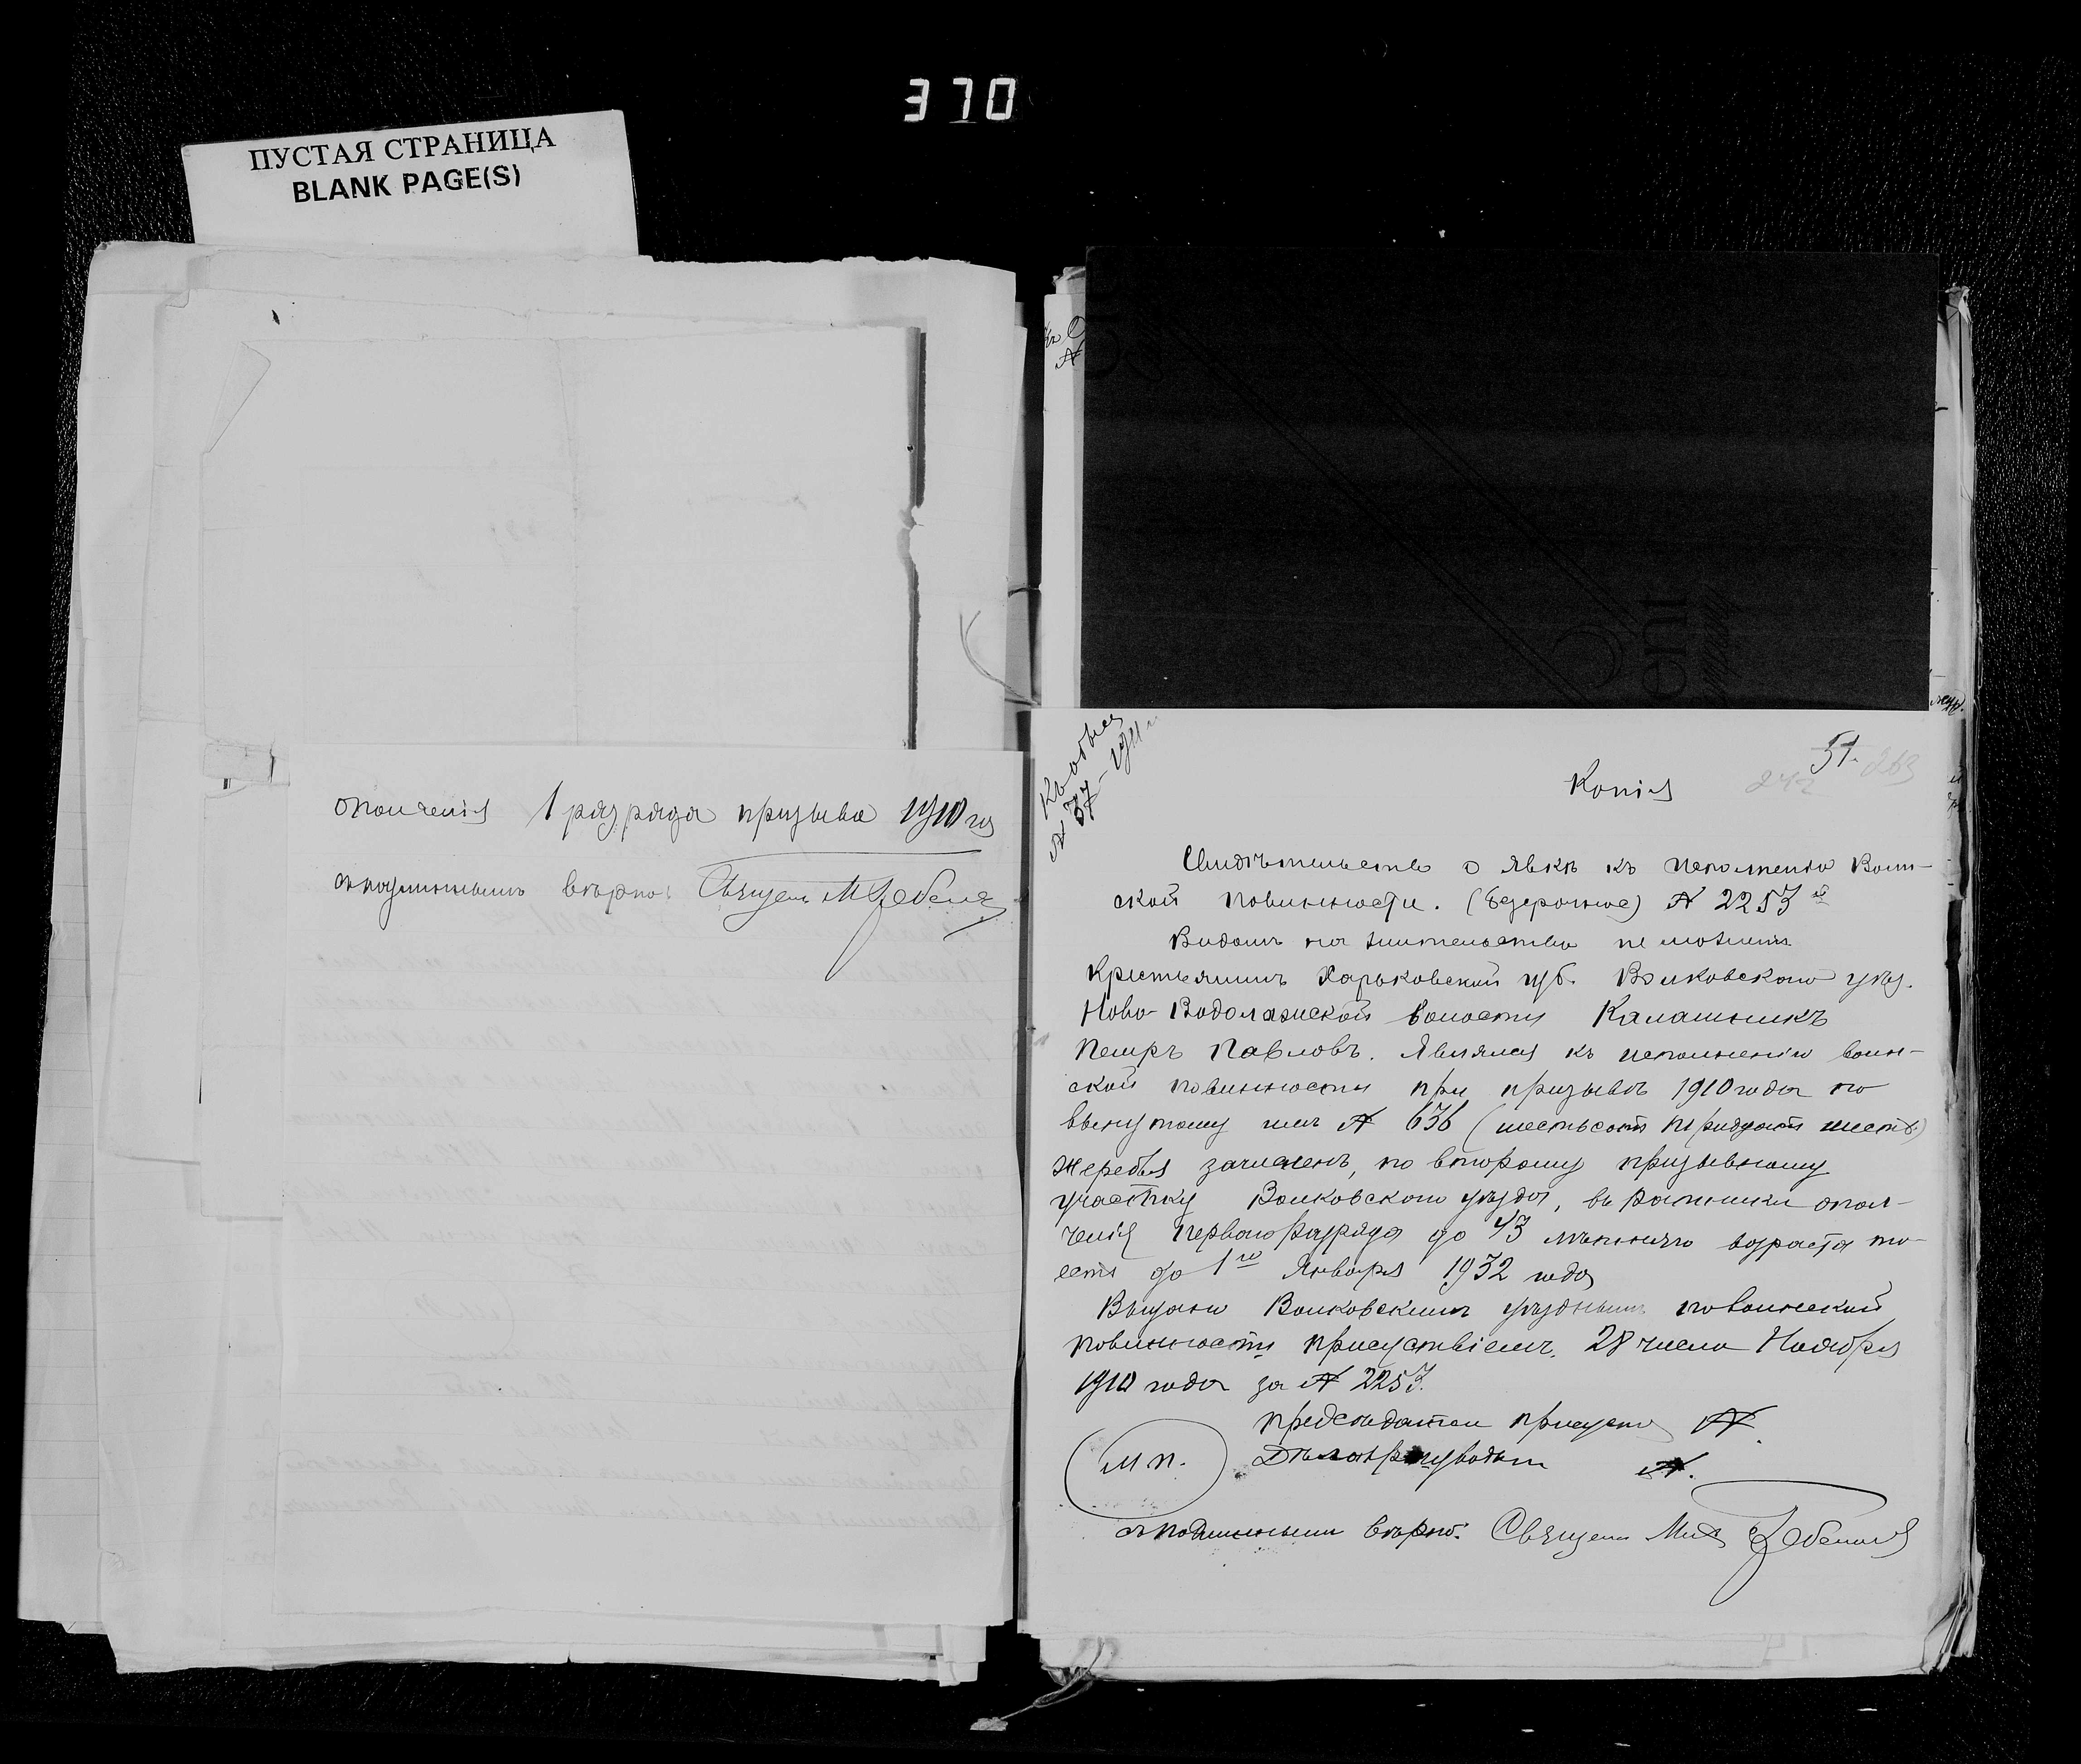 370
ПУСТАЯ СТРАНИЦА
BLANK PAGE(S)
ополченія 1 разряда призыва 1910 го
съ подлиннымъ вѣрно: Священ М
Къ обыс
№ 37 - 1911 г
51.
242 263
Копія
Свидѣтельство о явкѣ къ исполненію Воин-
ской повинности. (безсрочное) № 2253
Видомъ на жительство не можетъ
Крестьянинъ Харьковской губ. Валковскаго уѣз.
Ново-Водолажской волости Калашникъ
Петръ Павловъ. Являлся къ исполненію воин-
ской повинности при призывѣ 1910 года по
вынутому имъ № 636 (шестьсотъ тридцать шесть)
жеребья зачисленъ, по второму призывному
участку Валковскаго уѣзда, въ ратники опол-
ченія перваго разряда до 43 лѣтняго возраста то
есть до 1го Января 1932 года
Выдано Валковскимъ уѣзднымъ по воинской
повинности присутствіемъ. 28 числа Ноября
1910 года за № 2253.
предсѣдатель присутств
М П. Дѣлопроизводит
съ подлиннымъ вѣрно: Священ Мих